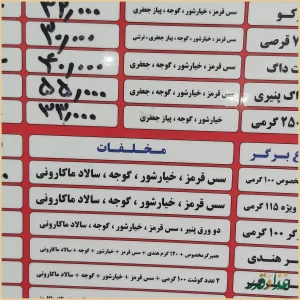 کو سس قرمز ، خیارشور ، گوجه ، پیاز جعفری ۳۲٫۰۰۰
۷ قرصی سس قرمز ، خیارشور ، گوجه ، پیاز جعفری ، ترشی ۳۰٫۰۰۰
ت داگ سس قرمز ، خیارشور ، گوجه ، جعفری ۴۰٫۰۰۰
اگ پنیری سس قرمز ، خیارشور ، گوجه ، جعفری ۵۵٫۰۰۰
۲۵۰ گرمی خیارشور ، گوجه ، پیاز جعفری ۳۳٫۰۰۰
ع برگر مخلفات
مخصوص ۱۰۰ گرمی سس قرمز ، خیارشور ، گوجه ، سالاد ماکارونی
ویژه ۱۱۵ گرمی سس قرمز ، خیارشور ، گوجه ، سالاد ماکارونی
گر ۱۰۰ گرمی دو ورق پنیر ، سس قرمز ، خیارشور ، گوجه ، سالاد ماکارونی
ر هندی همبرگر مخصوص + ۱۲۰ گرم هندی + سس قرمز + خیارشور + گوجه + سالاد ماکارونی
۲ عدد گوشت ۱۰۰ گرمی + سس قرمز + خیارشور + گوجه + سالاد ماکارونی